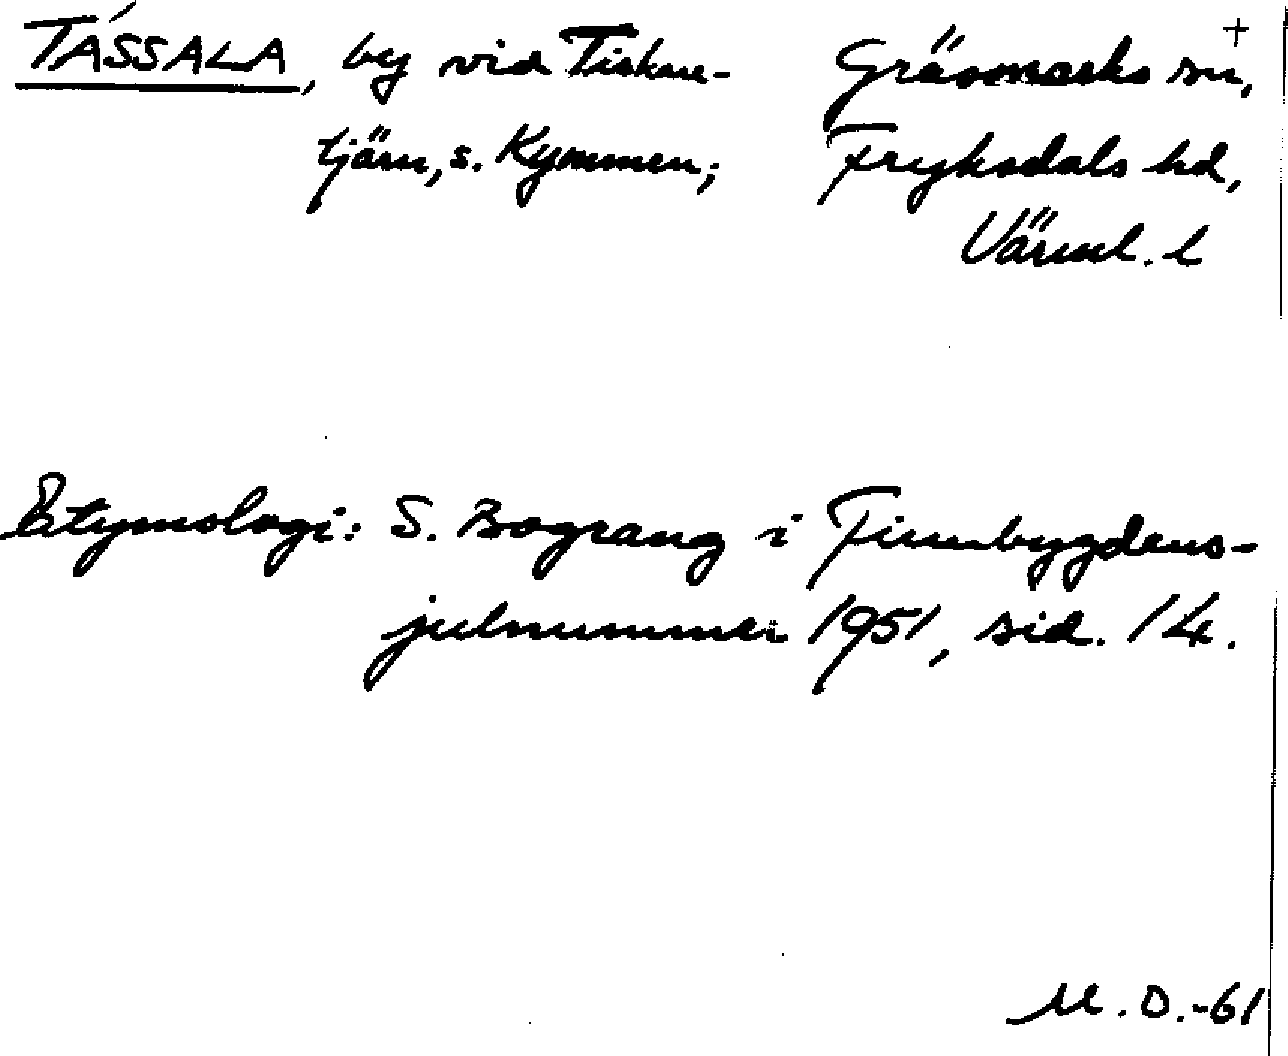 TÁSSALA, by vid Tiskare- Gräsmarks sn, +
tjärn, s. Kymmen; Fryksdals hd,
Värml. l
Etymologi: S. Bograng i Finnbygdens-
julnummer 1951, sid. 14.
M.O.-61